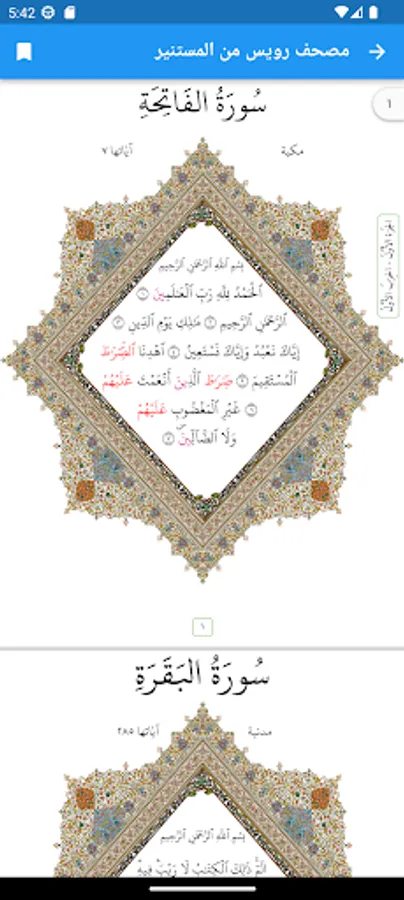 5:42
مصحف رويس من المستنير
سُورَةُ الفَاتِحَةِ
١
مكية
آياتها ٧
الجزء الأول - الحزب الأول
بِسْمِ اللَّهِ الرَّحْمَٰنِ الرَّحِيمِ
الْحَمْدُ لِلَّهِ رَبِّ الْعَٰلَمِينَ ١
الرَّحْمَٰنِ الرَّحِيمِ ٢ مَٰلِكِ يَوْمِ الدِّينِ ٣
إِيَّاكَ نَعْبُدُ وَإِيَّاكَ نَسْتَعِينُ ٤ اهْدِنَا السِّرَٰطَ
الْمُسْتَقِيمَ ٥ سِرَٰطَ الَّذِينَ أَنْعَمْتَ عَلَيْهُمْ
٦ غَيْرِ الْمَغْضُوبِ عَلَيْهُمْ
وَلَا الضَّآلِّينَ ٧
١
سُورَةُ البَقَرَةِ
مدنية
آياتها ٢٨٥
بِسْمِ اللَّهِ الرَّحْمَٰنِ الرَّحِيمِ
الٓمٓ ذَٰلِكَ الْكِتَٰبُ لَا رَيْبَ فِيهِ